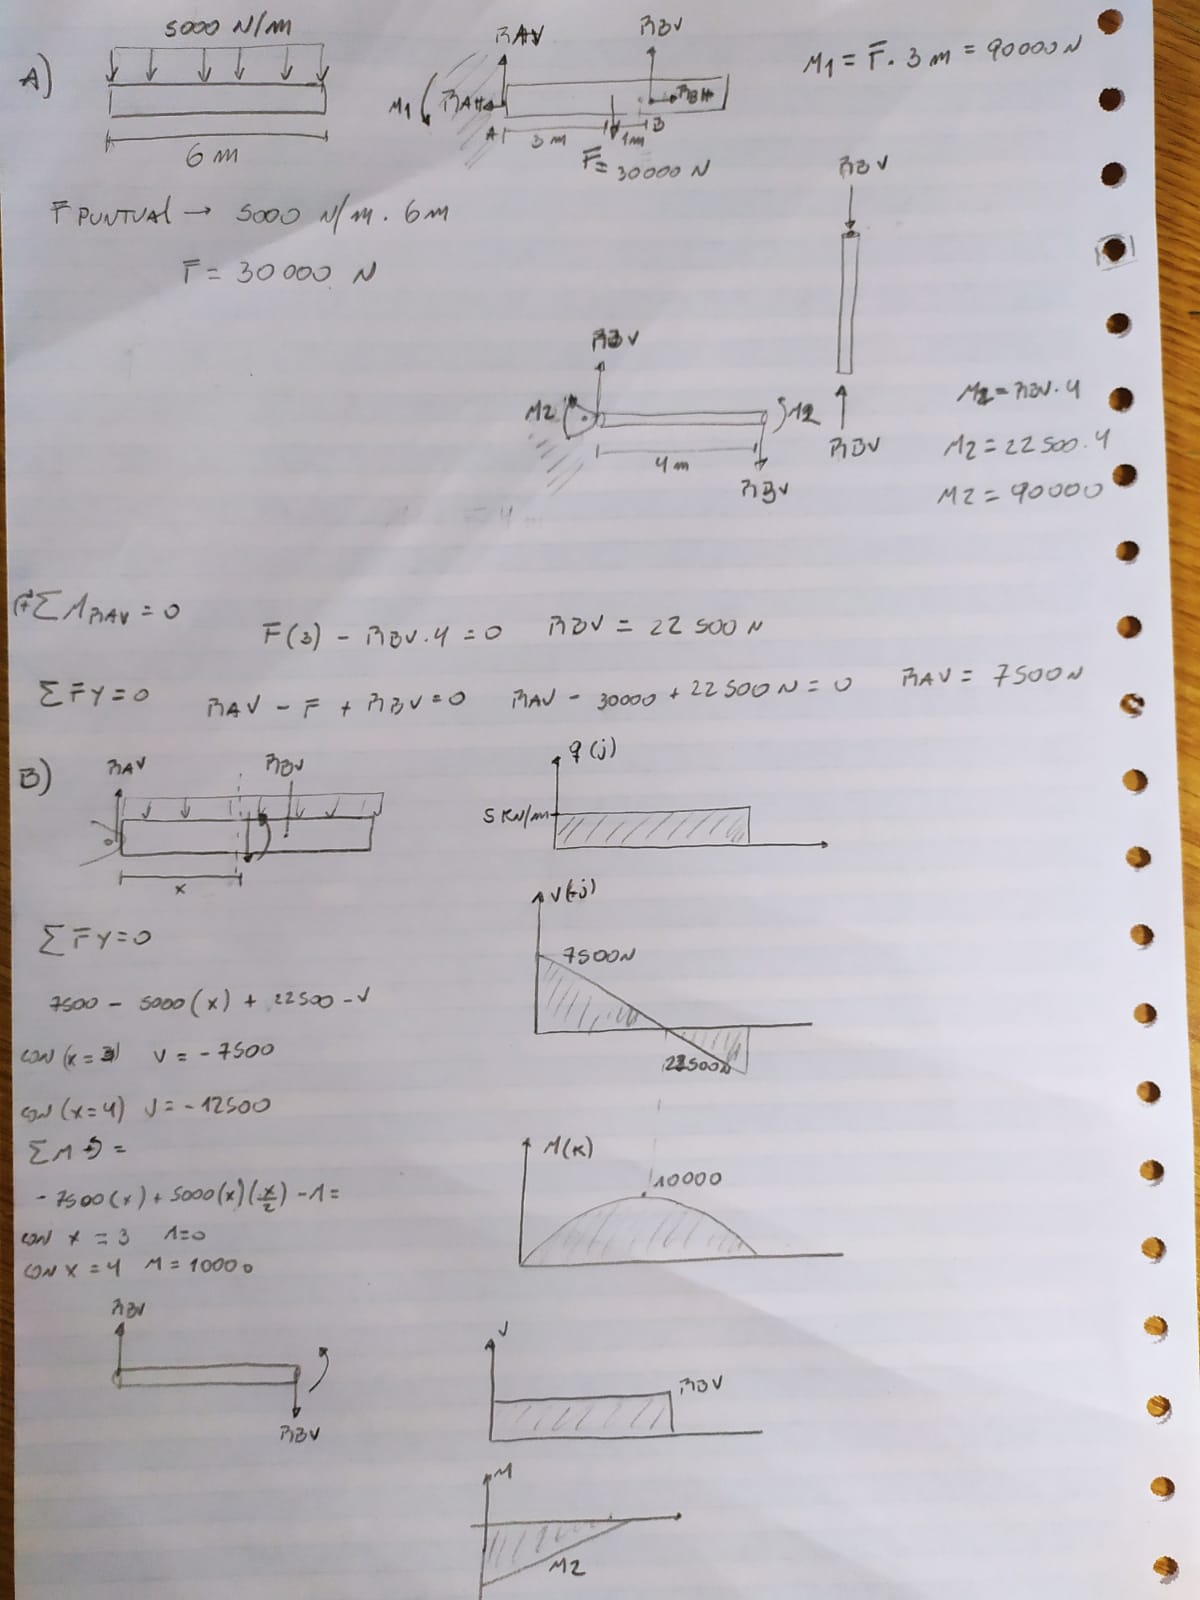 A)
5000 N/m
6 m
RAV
RBV
M1
RAH
RBH
A
3 m
1m
B
F = 30000 N
M1 = F . 3 m = 90000 N
F PUNTUAL → 5000 N/m . 6m
F = 30 000 N
RBV
RBV
RBV
M2
M2
4 m
RBV
M2 = RBV . 4
M2 = 22 500 . 4
M2 = 90000
+ΣM RAV = 0
F(3) - RBV . 4 = 0 RBV = 22 500 N
ΣFY = 0 RAV - F + RBV = 0 RAV - 30000 + 22500 N = 0 RAV = 7500 N
B)
RAV
RBV
x
q (j)
5 KN/m
V(j)
7500N
22500N
ΣFY = 0
7500 - 5000 (x) + 22500 - V
CON (x = 3) V = - 7500
CON (x = 4) V = - 12500
ΣM =
- 7500 (x) + 5000 (x) (x/2) - M =
CON x = 3 M = 0
CON x = 4 M = 10000
M(x)
10000
RBV
RBV
V
RBV
M
M2